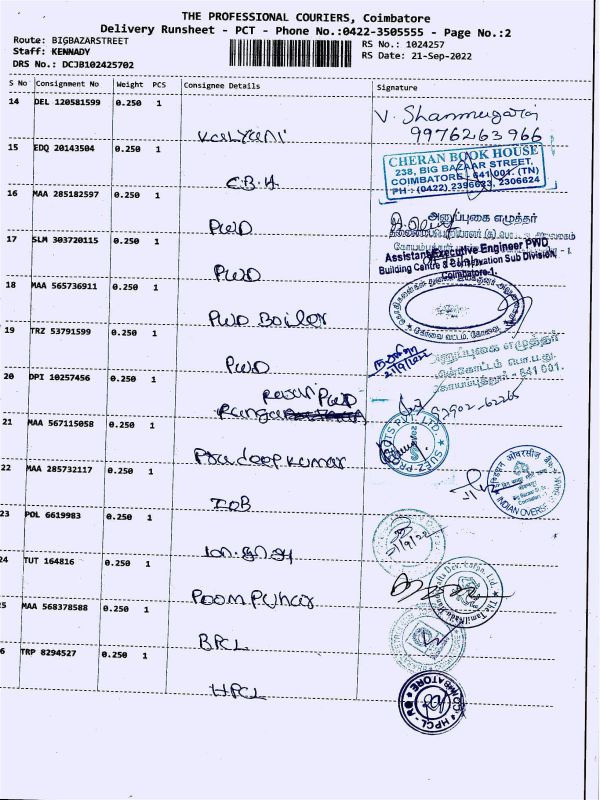 THE PROFESSIONAL COURIERS, Coimbatore
Delivery Runsheet - PCT - Phone No.:0422-3505555 - Page No.:2
Route: BIGBAZARSTREET
RS No.: 1024257
Staff: KENNADY
RS Date: 21-Sep-2022
DRS No.: DCJB102425702
S No Consignment No Weight PCS Consignee Details Signature
14 DEL 120581599 0.250 1
V. Shanmugaraj
9976263966
15 EDQ 20143504 0.250 1 C.B.H
CHERAN BOOK HOUSE
238, BIG BAZAAR STREET,
COIMBATORE - 641 001. (TN)
PH : (0422) 2396623, 2306624
16 MAA 285182597 0.250 1 PWD
அனுப்புகை எழுத்தர்
17 SLM 303720115 0.250 1 PWD
Assistant Executive Engineer PWD
Building Centre & Conservation Sub Division,
Coimbatore-1.
18 MAA 565736911 0.250 1 PWD Boiler
19 TRZ 53791599 0.250 1 PWD
21/9/22
அனுப்புகை எழுத்தர்
கோயம்புத்தூர் - 641 001.
20 DPI 10257456 0.250 1 PWD
21 MAA 567115058 0.250 1 Pradeep kumar
22 MAA 285732117 0.250 1 IOB
INDIAN OVERSEAS BANK
23 POL 6619983 0.250 1
21/9/22
24 TUT 164816 0.250 1 Poompuhar
25 MAA 568378588 0.250 1 BPCL
26 TRP 8294527 0.250 1 HPCL
HPCL - R
COIMBATORE